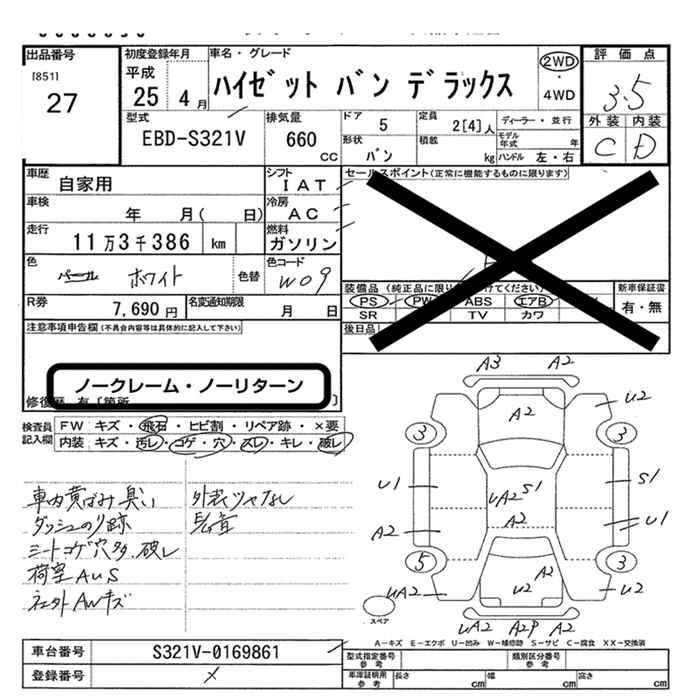 出品番号 初度登録年月 車名・グレード 評価点
[851] 27
平成 25年 4月 ハイゼット バン デラックス 2WD・4WD 3.5
型式 排気量 ドア 5 定員 2[4]人 ディーラー・並行 外装 内装
EBD-S321V 660 CC 形状 バン 積載 kg モデル年式 年 ハンドル 左・右 C D
車歴 自家用 シフト IAT セールスポイント(正常に機能するものに限ります)
車検 年 月( 日) 冷房 AC
走行 11万3千386 km 燃料 ガソリン
色 パール ホワイト 色替 色コード W09
装備品(純正品に限り けてください) 新車保証書
PS PW ABS エアB 有・無
SR TV カワ
R券 7,690円 名変通知期限 月 日
後日品
注意事項申告欄(不具合内容等は具体的に記入して下さい)
ノークレーム・ノーリターン
修復歴 有〔箇所 〕
検査員記入欄 FW キズ・飛石・ヒビ割・リペア跡・×要
内装 キズ・汚レ・コゲ・穴・スレ・キレ・破レ
車内黄ばみ臭い 外装ツヤなし
ダッシュのり跡
シートコゲ穴多、破レ
荷室AUS
社外AWキズ
A3 A2
A2 U2
3 3
U1 UA2 S1 S1
A2 A2 U1
5 3
UA2 A2 U2 U2
UA2 A2P A2
スペア
A-キズ E-エクボ U-凹み W-補修跡 S-サビ C-腐食 XX-交換済
車台番号 S321V-0169861 型式指定番号 参考 類別区分番号 参考
登録番号 車庫証明用 参考 長さ cm 幅 cm 高さ cm